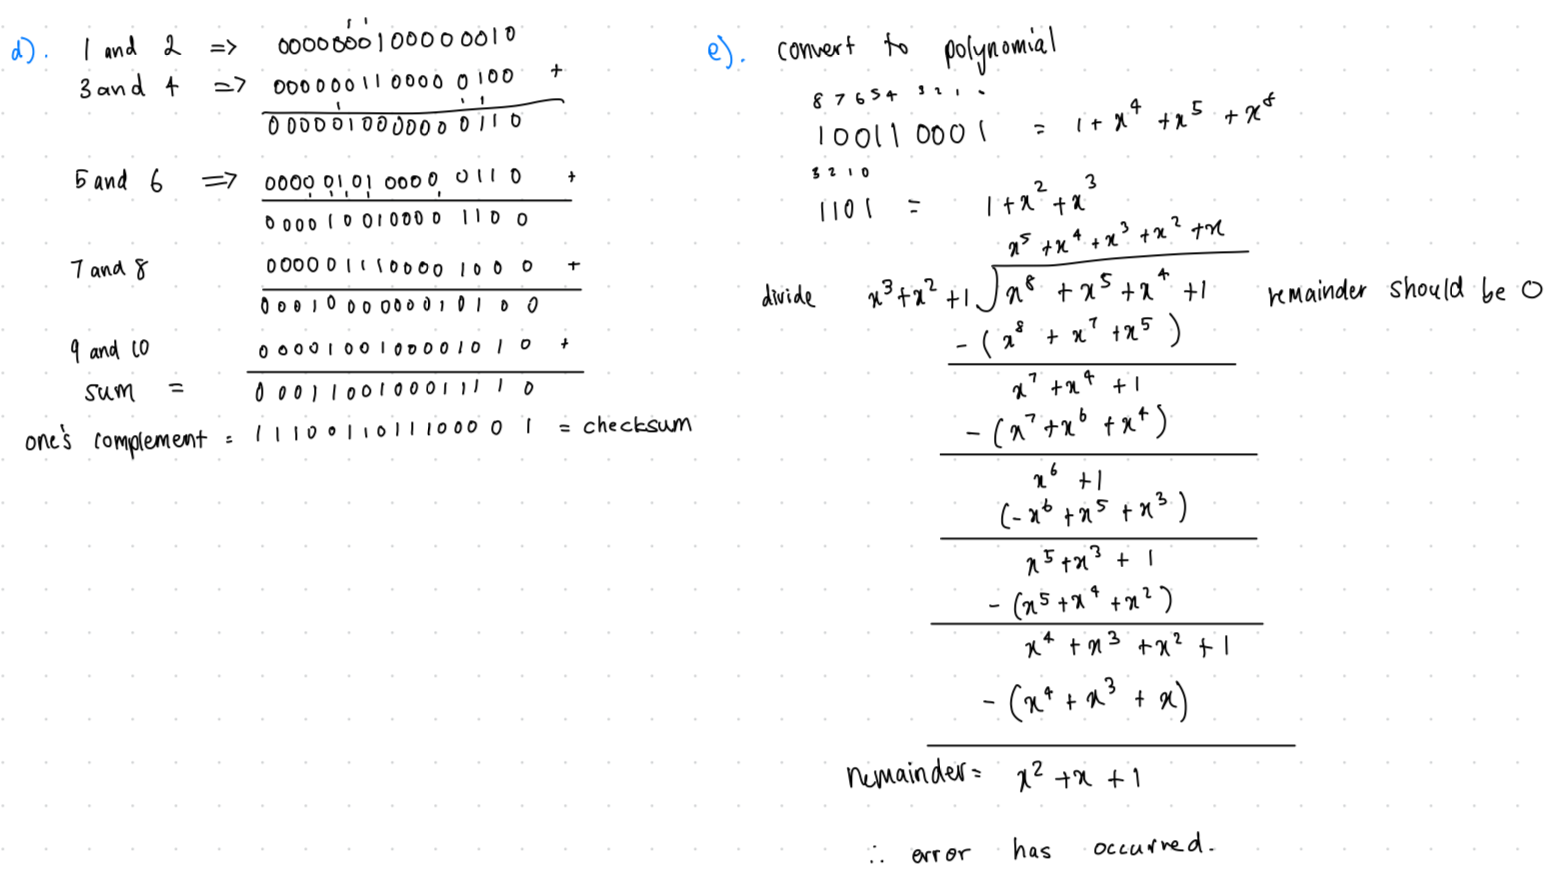 d). 1 and 2 => 0000000100000010
3 and 4 => 0000001100000100 +
0000010000000110
5 and 6 => 0000010100000110 +
0000100100001100
7 and 8 0000011100001000 +
0001000000010100
9 and 10 0000100100001010 +
sum = 0001100100011110
one's complement = 1110011011100001 = checksum
e). convert to polynomial
8 7 6 5 4 3 2 1 .
100110001 = 1 + x⁴ + x⁵ + x⁸
3 2 1 0
1101 = 1 + x² + x³
x⁵ + x⁴ + x³ + x² + x
divide x³ + x² + 1 x⁸ + x⁵ + x⁴ + 1 remainder should be 0
- ( x⁸ + x⁷ + x⁵ )
x⁷ + x⁴ + 1
- ( x⁷ + x⁶ + x⁴ )
x⁶ + 1
(- x⁶ + x⁵ + x³ )
x⁵ + x³ + 1
- ( x⁵ + x⁴ + x² )
x⁴ + x³ + x² + 1
- ( x⁴ + x³ + x )
remainder = x² + x + 1
∴ error has occurred.